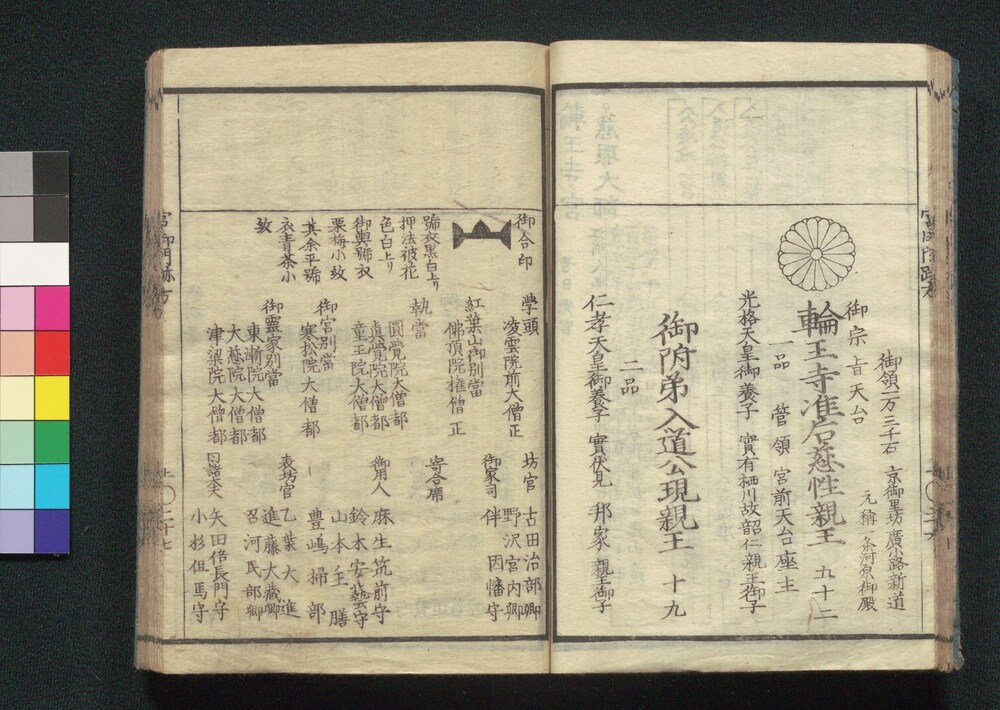 御領一万三千石 京御里坊 廣小路新道
元稱一条河原御殿
御宗旨天台
輪王寺准后慈性親王 五十二
一品 管領宮 前天台座主
光格天皇御養子 實有栖川故韶仁親王御子
御附弟入道公現親王 十九
二品
仁孝天皇御養子 實伏見 邦家親王御子
御合印
號衣黒白上り
押法被花
色白上り
御輿號衣
栗梅小紋
其余平號
衣青茶小
紋
学頭
凌雲院前大僧正
紅葉山御別當
佛頂院権僧正
執當
圓覚院大僧都
真覺院大僧都
童王院大僧都
御宮別當
寒松院大僧都
御霊家別當
東漸院大僧都
大慈院大僧都
津梁院大僧都
坊官 古田治部卿
野沢宮内卿
御家司 伴因幡守
寄合席
御用人 麻生筑前守
鈴木安藝守
山本主膳
豊嶋掃部
表坊官 乙葉大進
進藤大蔵卿
忍河民部卿
矢田信長門守
小杉但馬守